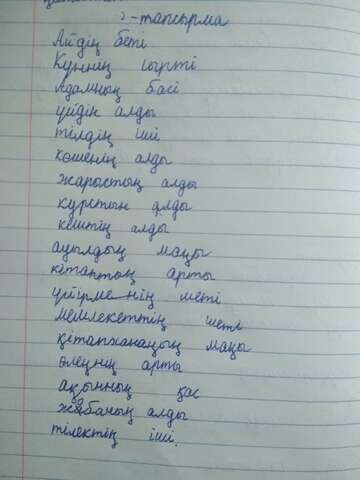 2-тапсырма
Айдің беті
Күннің сырті
Адамның басі
үйдін алды
тілдің іші
көшенің алды
жарыстың алды
курстын алды
кештің алды
ауылдың маңы
кітаптың арты
үйірменің шеті
мемлекеттің шеті
кітапхананың маңы
өлеңнің арты
ақынның қас
жобаның алды
тілектің іші.